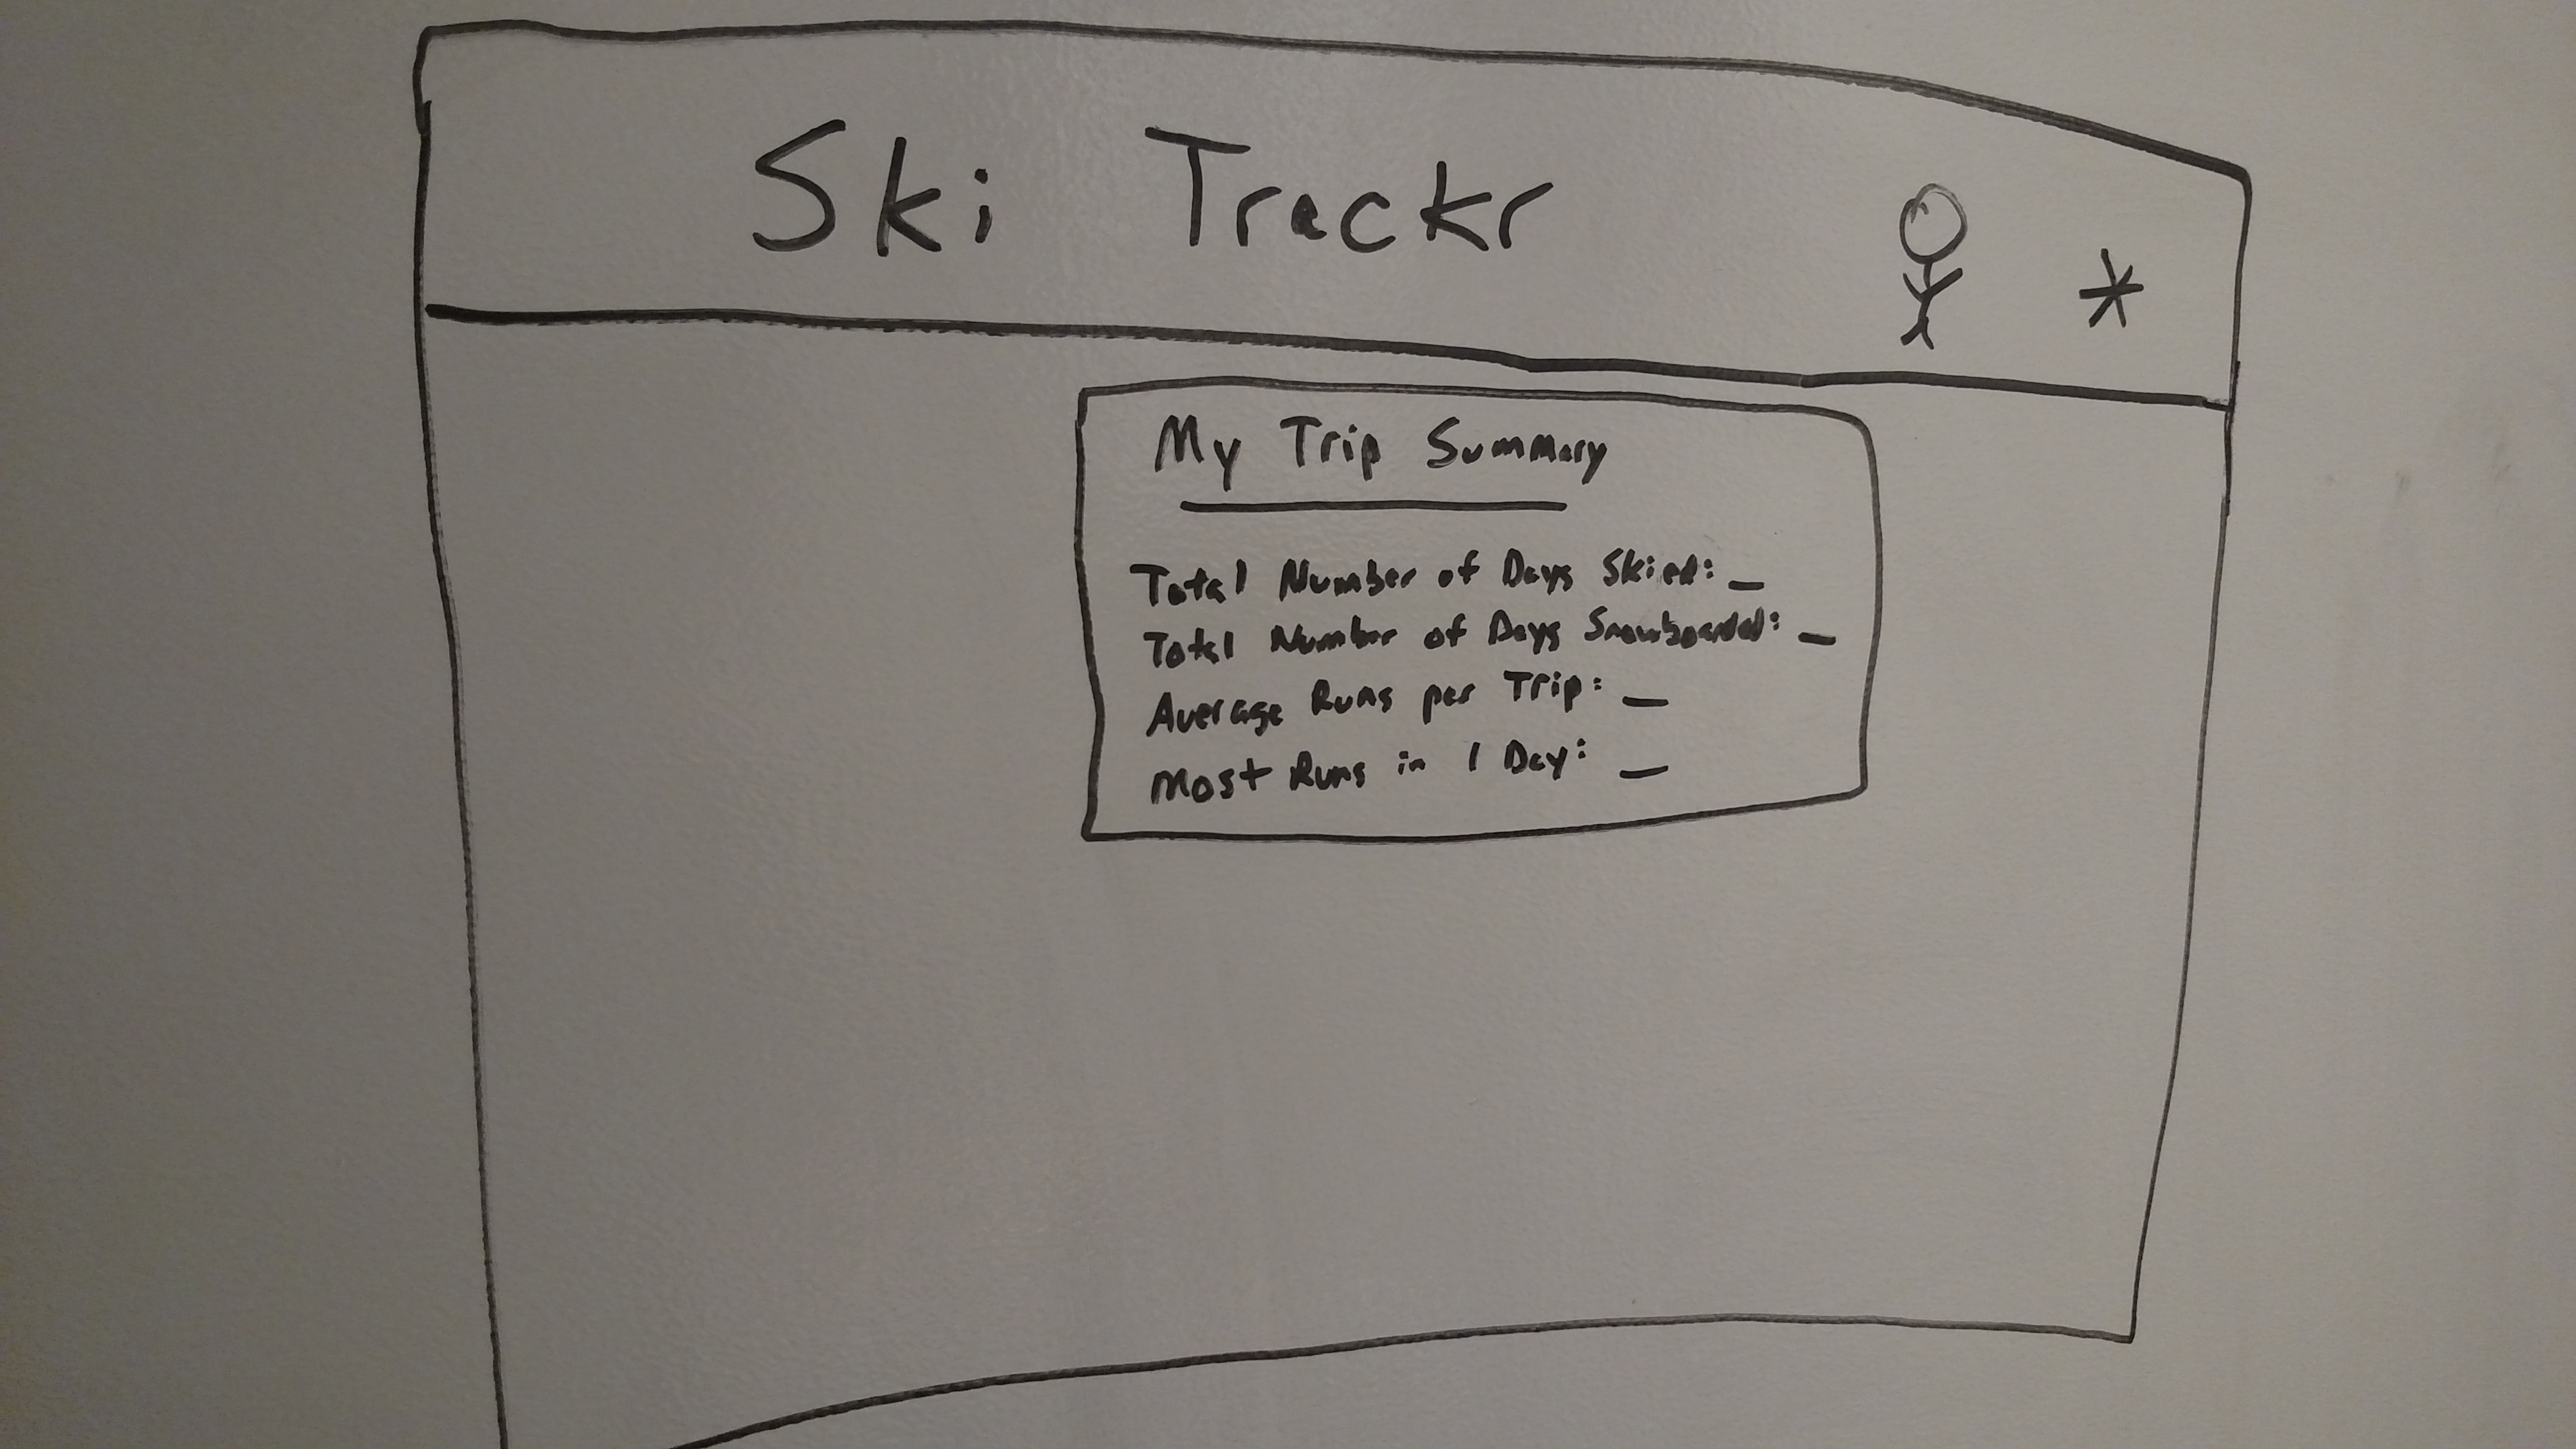 Ski Trackr
*
My Trip Summary
Total Number of Days Skied: _
Total Number of Days Snowboarded: _
Average Runs per Trip: _
Most Runs in 1 Day: _